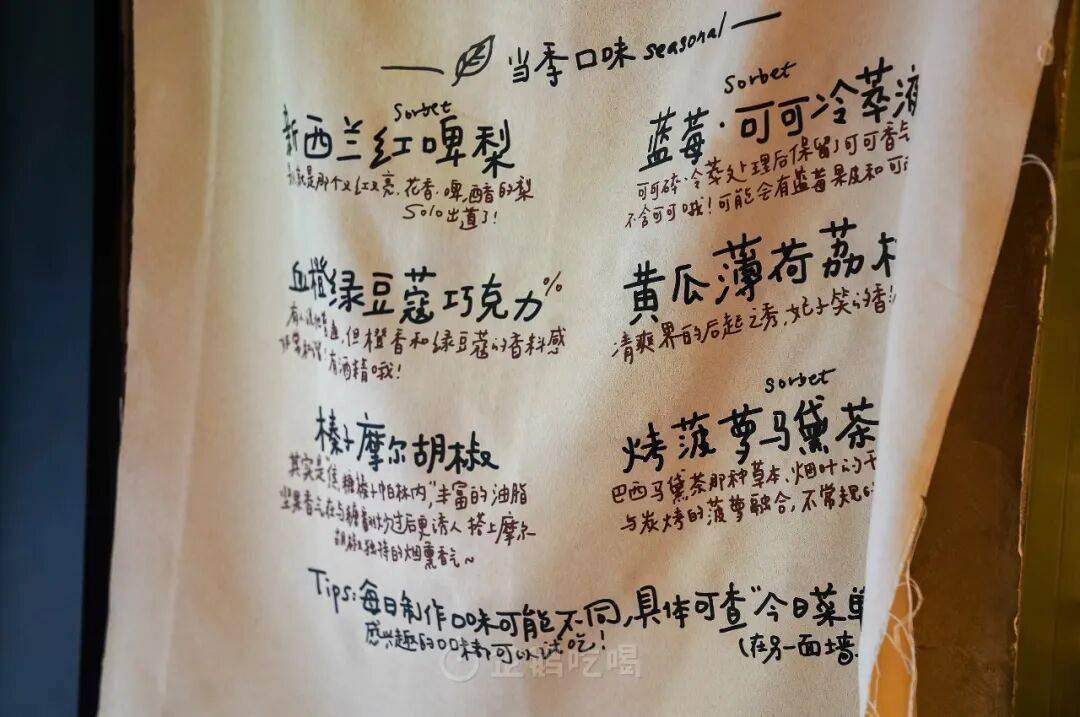 当季口味 seasonal
sorbet
新西兰红啤梨
就是那个又红又亮、花香、啤酒香的梨
Solo出道了!
血橙绿豆蔻巧克力%
但橙香和绿豆蔻的香料感
有酒精哦!
榛子摩尔胡椒
其实是焦糖榛子帕林内,丰富的油脂
坚果香气在与糖翻炒过后更诱人 搭上摩尔
胡椒独特的烟熏香气~
sorbet
蓝莓·可可冷萃液
可可碎冷萃处理后保留了可可香
不含可可哦!可能会有蓝莓果皮和可
黄瓜薄荷荔
清爽界的后起之秀,妃子笑的香
sorbet
烤菠萝马黛茶
巴西马黛茶那种草本、烟叶的干
与炭烤的菠萝融合,不常规的
Tips:每日制作口味可能不同,具体可查"今日菜单
感兴趣的口味都可以试吃!
(在另一面墙
企鹅吃喝